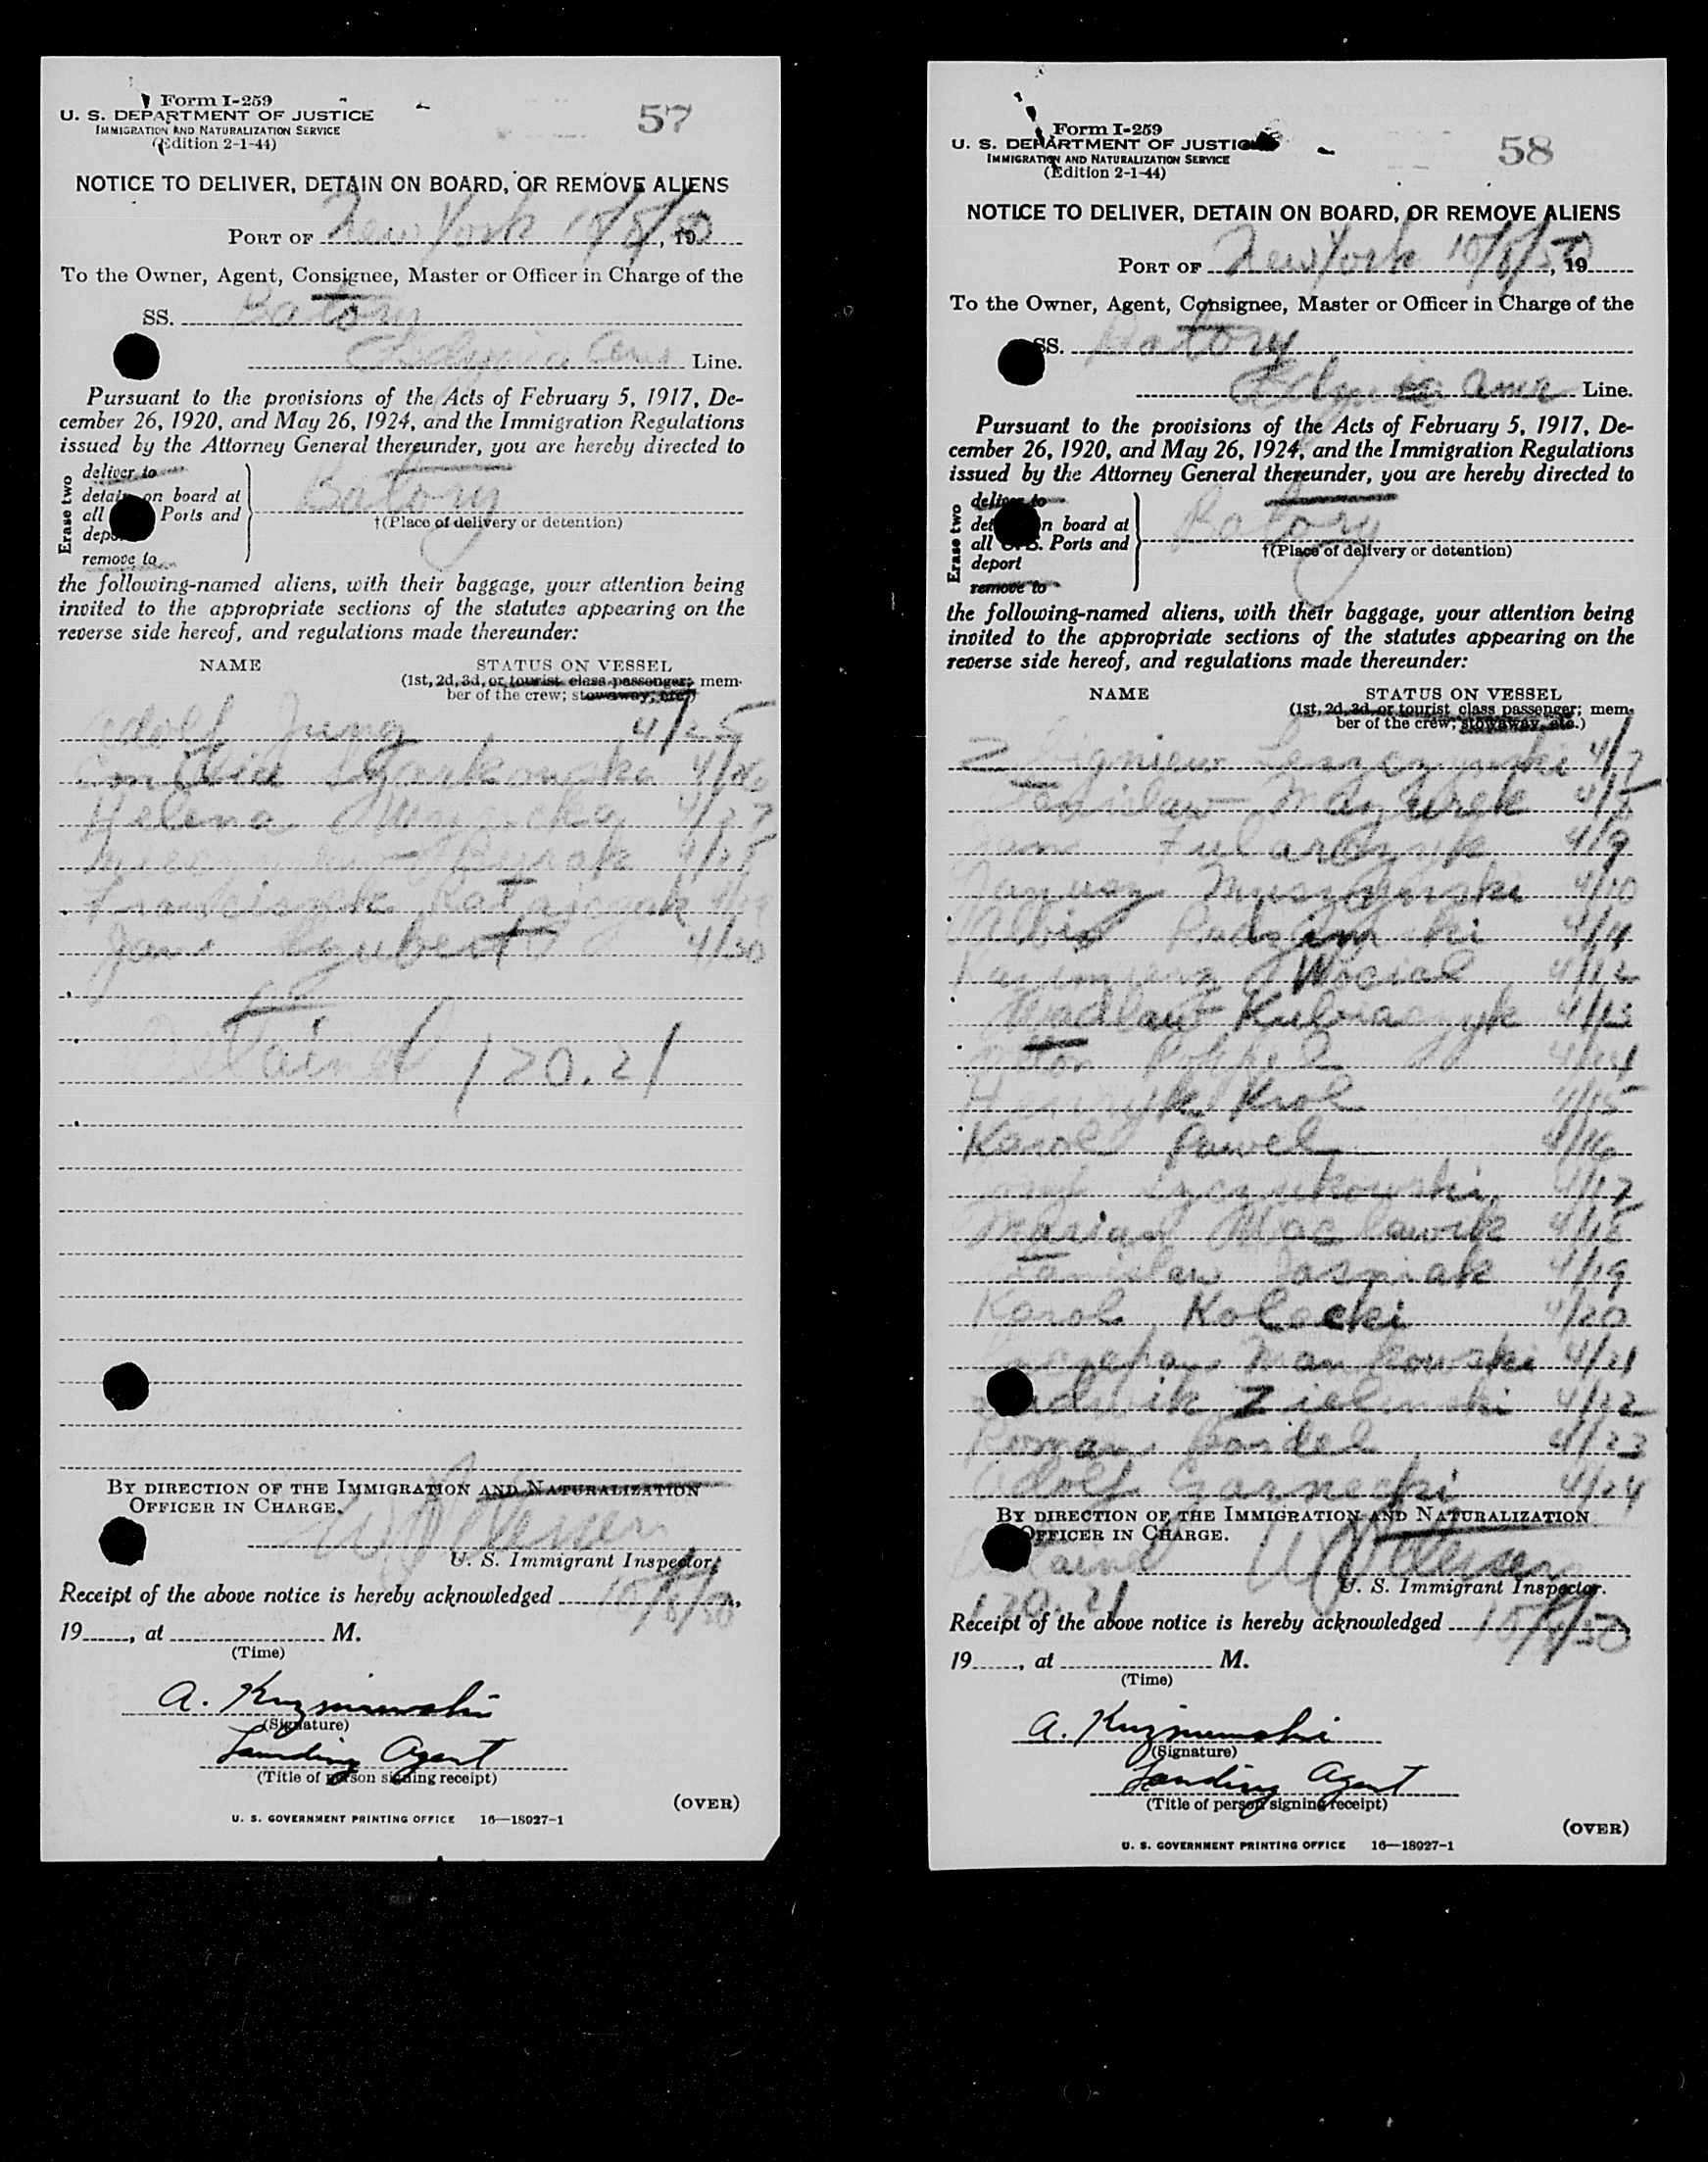 Form I-259
U. S. DEPARTMENT OF JUSTICE
IMMIGRATION AND NATURALIZATION SERVICE
(Edition 2-1-44)
57
NOTICE TO DELIVER, DETAIN ON BOARD, OR REMOVE ALIENS
PORT OF New York 10/8/50, 19
To the Owner, Agent, Consignee, Master or Officer in Charge of the
SS. Batory
Gdynia Line.
Pursuant to the provisions of the Acts of February 5, 1917, De-
cember 26, 1920, and May 26, 1924, and the Immigration Regulations
issued by the Attorney General thereunder, you are hereby directed to
Erase two
deliver to
detain on board at
all Ports and
remove to
Batory
†(Place of delivery or detention)
the following-named aliens, with their baggage, your attention being
invited to the appropriate sections of the statutes appearing on the
reverse side hereof, and regulations made thereunder:
NAME STATUS ON VESSEL
(1st, 2d, 3d, or tourist class passenger; mem-
ber of the crew; stowaway, etc.)
Adolf Jung 4/25
4/26
Helena 4/27
4/28
Franciszek Ratajczak 4/29
Jan Szubert 4/30
Detained 120.21
BY DIRECTION OF THE IMMIGRATION AND NATURALIZATION
OFFICER IN CHARGE.
U. S. Immigrant Inspector.
Receipt of the above notice is hereby acknowledged 10/8/50,
19, at M.
(Time)
A. Kuzniewski
(Signature)
Landing Agent
(Title of person signing receipt)
(OVER)
U. S. GOVERNMENT PRINTING OFFICE 16—18027-1
Form I-259
U. S. DEPARTMENT OF JUSTICE
IMMIGRATION AND NATURALIZATION SERVICE
(Edition 2-1-44)
58
NOTICE TO DELIVER, DETAIN ON BOARD, OR REMOVE ALIENS
PORT OF New York 10/8/50, 19
To the Owner, Agent, Consignee, Master or Officer in Charge of the
SS. Batory
Gdynia Amer Line.
Pursuant to the provisions of the Acts of February 5, 1917, De-
cember 26, 1920, and May 26, 1924, and the Immigration Regulations
issued by the Attorney General thereunder, you are hereby directed to
Erase two
deliver to
detain on board at
all U.S. Ports and
deport
remove to
Batory
†(Place of delivery or detention)
the following-named aliens, with their baggage, your attention being
invited to the appropriate sections of the statutes appearing on the
reverse side hereof, and regulations made thereunder:
NAME STATUS ON VESSEL
(1st, 2d, 3d, or tourist class passenger; mem-
ber of the crew; stowaway, etc.)
Zbigniew Leszczynski 4/7
Stanislaw Mazurek 4/8
Jan Fularczyk 4/9
4/10
Albin Rudzinski 4/11
Kazimierz Wocial 4/12
Wladlaw Kubiaczyk 4/13
4/14
Henryk Krol 4/15
Karol Pawel 4/16
4/17
Marian Waclawik 4/18
Stanislaw Jasniak 4/19
Karol Kolecki 4/20
Mankowski 4/21
Ludwik Zielinski 4/22
Roman Bardel 4/23
Adolf Czarnecki 4/24
BY DIRECTION OF THE IMMIGRATION AND NATURALIZATION
OFFICER IN CHARGE.
Detained
120.21
U. S. Immigrant Inspector.
Receipt of the above notice is hereby acknowledged 10/8/50,
19, at M.
(Time)
A. Kuzniewski
(Signature)
Landing Agent
(Title of person signing receipt)
(OVER)
U. S. GOVERNMENT PRINTING OFFICE 16—18027-1